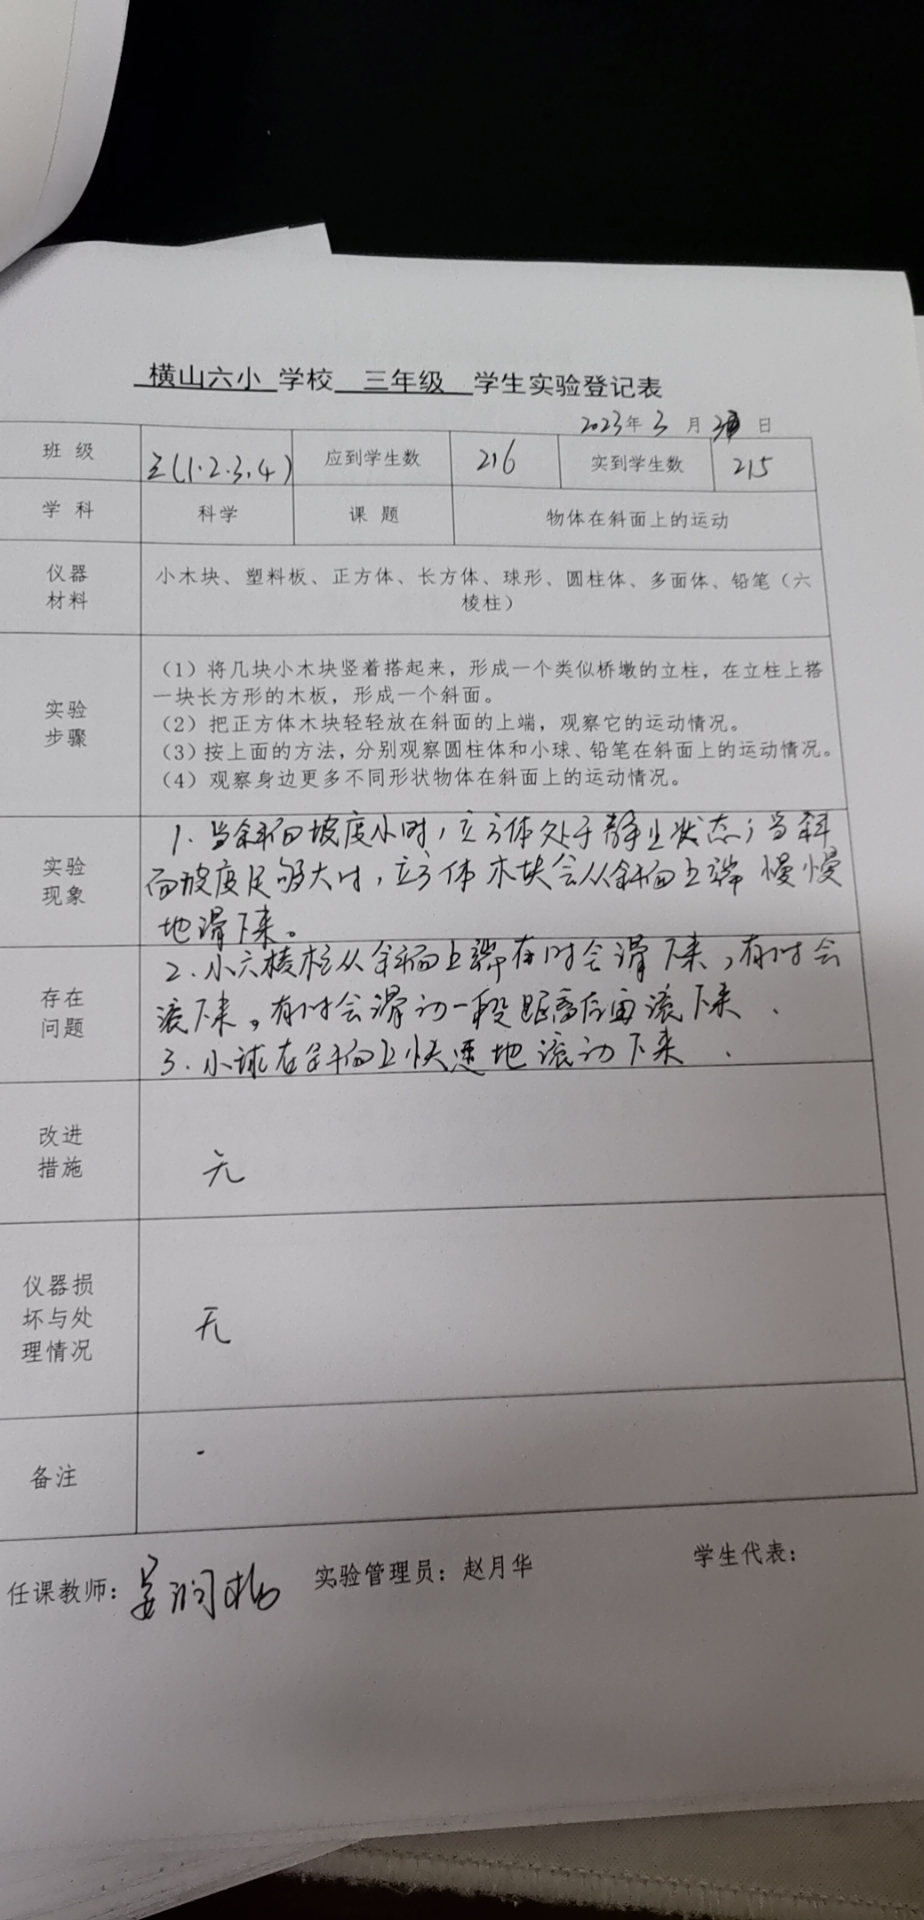 横山六小 学校 三年级 学生实验登记表
2023年 3 月 日
班 级 三(1.2.3.4) 应到学生数 216 实到学生数 215
学 科 科学 课 题 物体在斜面上的运动
仪器
材料
小木块、塑料板、正方体、长方体、球形、圆柱体、多面体、铅笔（六
棱柱）
实验
步骤
（1）将几块小木块竖着搭起来，形成一个类似桥墩的立柱，在立柱上搭
一块长方形的木板，形成一个斜面。
（2）把正方体木块轻轻放在斜面的上端，观察它的运动情况。
（3）按上面的方法，分别观察圆柱体和小球、铅笔在斜面上的运动情况。
（4）观察身边更多不同形状物体在斜面上的运动情况。
实验
现象
1. 当斜面坡度小时，立方体处于静止状态；当斜
面坡度足够大时，立方体木块会从斜面上端慢慢
地滑下来。
存在
问题
2. 小六棱柱从斜面上端有时会滑下来，有时会
滚下来，有时会滑动一段距离后再滚下来．
3. 小球在斜面上快速地滚动下来．
改进
措施
无
仪器损
坏与处
理情况
无
备注
任课教师： 实验管理员：赵月华 学生代表：